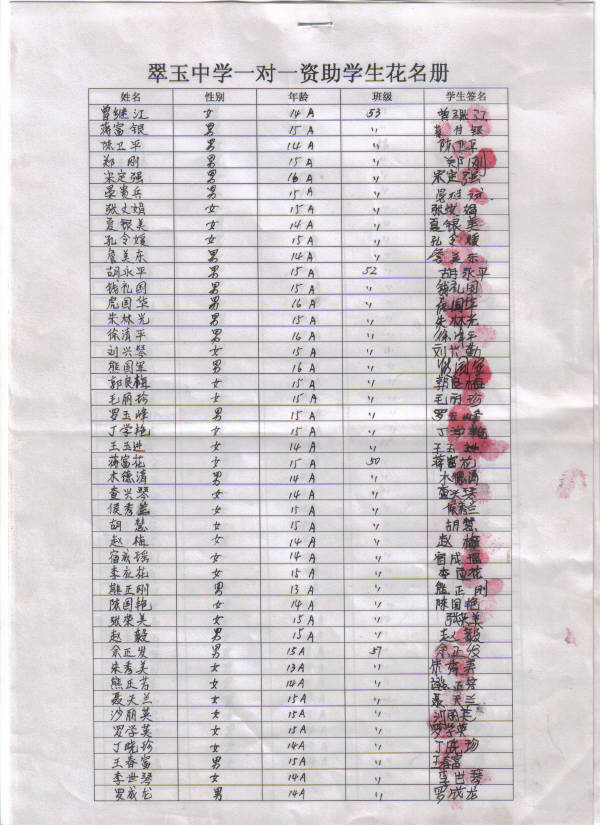 翠玉中学一对一资助学生花名册
姓名 性别 年龄 班级 学生签名
曾继江 女 14A 53
蒋富银 男 15A 〃
陈卫平 男 14A 〃 陈卫平
郑刚 男 15A 〃 郑刚
宋定强 男 16A 〃 宋定强
晏贵兵 男 15A 〃
张文娟 女 15A 〃 张文娟
夏银美 女 14A 〃 夏银美
孔令媛 女 15A 〃 孔令媛
詹美东 男 14A 〃 詹美东
胡永平 男 15A 52 胡永平
钱礼国 男 15A 〃 钱礼国
虎国华 男 16A 〃 虎国华
朱林光 男 15A 〃 朱林光
徐清平 男 16A 〃 徐清平
刘兴琴 女 15A 〃
熊国军 男 16A 〃
郭良梅 女 15A 〃 郭良梅
毛丽珍 女 15A 〃 毛丽珍
罗玉峰 男 15A 〃 罗玉峰
丁学艳 女 15A 〃 丁学艳
王玉进 女 14A 〃
蒋富花 女 15A 50 蒋富花
木德清 男 14A 〃 木德清
查兴琴 女 14A 〃 查兴琴
侯秀兰 女 15A 〃 侯秀兰
胡慧 女 15A 〃 胡慧
赵梅 女 14A 〃 赵梅
宿成瑶 女 14A 〃 宿成瑶
李应花 女 15A 〃 李应花
熊正刚 男 13A 〃 熊正刚
陈国艳 女 14A 〃 陈国艳
张荣美 女 15A 〃 张荣美
赵毅 男 15A 〃 赵毅
余正发 男 15A 57 余正发
朱秀美 女 13A 〃 朱秀美
熊正芳 女 14A 〃 熊正芳
聂天兰 女 15A 〃 聂天兰
沙丽英 女 15A 〃 沙丽英
罗学英 女 15A 〃 罗学英
丁晓珍 女 14A 〃 丁晓珍
王春富 男 15A 〃 王春富
李世琴 女 14A 〃 李世琴
罗成龙 男 14A 〃 罗成龙